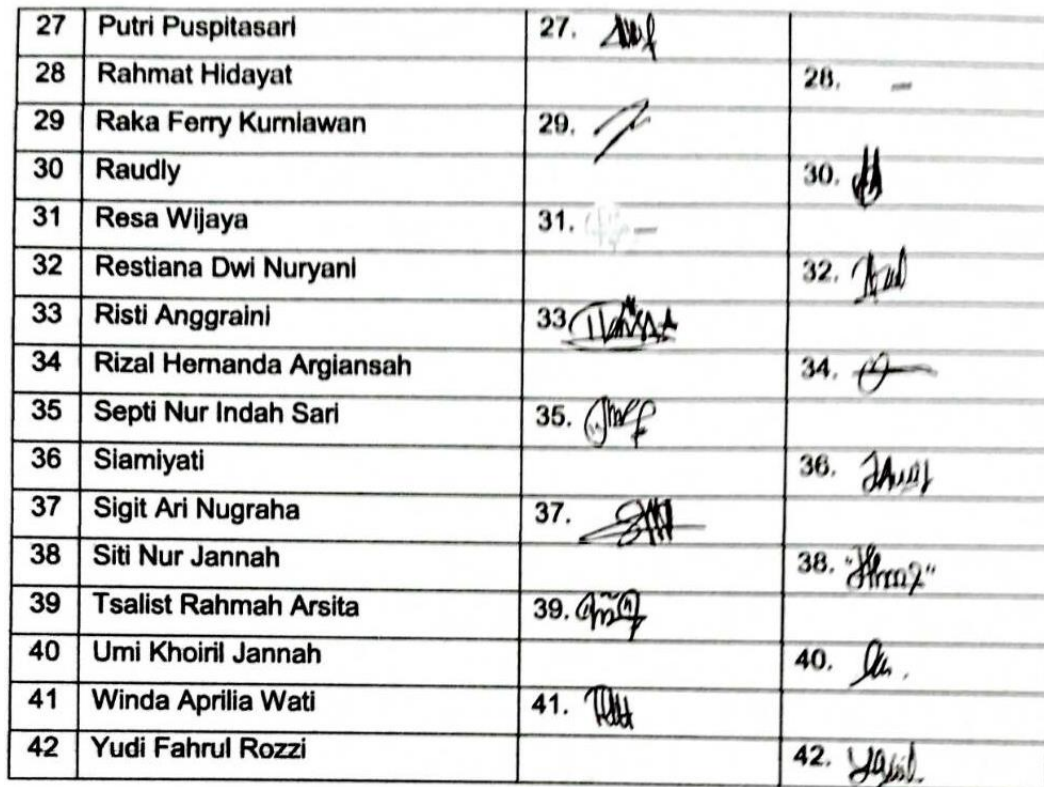 27 Putri Puspitasari 27.
28 Rahmat Hidayat 28. -
29 Raka Ferry Kurniawan 29.
30 Raudly 30.
31 Resa Wijaya 31. -
32 Restiana Dwi Nuryani 32.
33 Risti Anggraini 33
34 Rizal Hernanda Argiansah 34.
35 Septi Nur Indah Sari 35.
36 Siamiyati 36.
37 Sigit Ari Nugraha 37.
38 Siti Nur Jannah 38.
39 Tsalist Rahmah Arsita 39.
40 Umi Khoiril Jannah 40.
41 Winda Aprilia Wati 41.
42 Yudi Fahrul Rozzi 42.